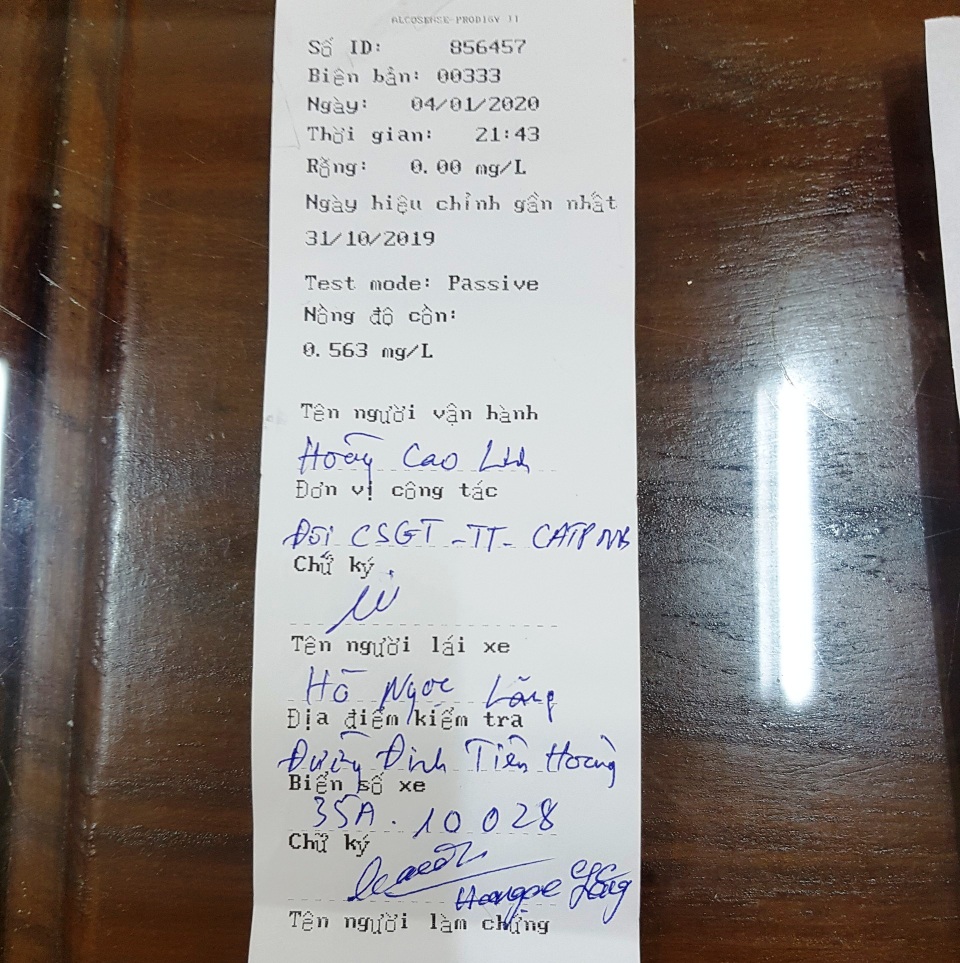 ALCOSENSE PRODIGY II
Số ID: 856457
Biên bản: 00333
Ngày: 04/01/2020
Thời gian: 21:43
Rỗng: 0.00 mg/L
Ngày hiệu chỉnh gần nhất
31/10/2019
Test mode: Passive
Nồng độ cồn:
0.563 mg/L
Tên người vận hành
Hoàng Cao
Đơn vị công tác
Đội CSGT-TT- CATP NB
Chữ ký
Tên người lái xe
Hồ Ngọc Lăng
Địa điểm kiểm tra
Đường Đinh Tiên Hoàng
Biển số xe
35A. 10028
Chữ ký
Lăng
Tên người làm chứng